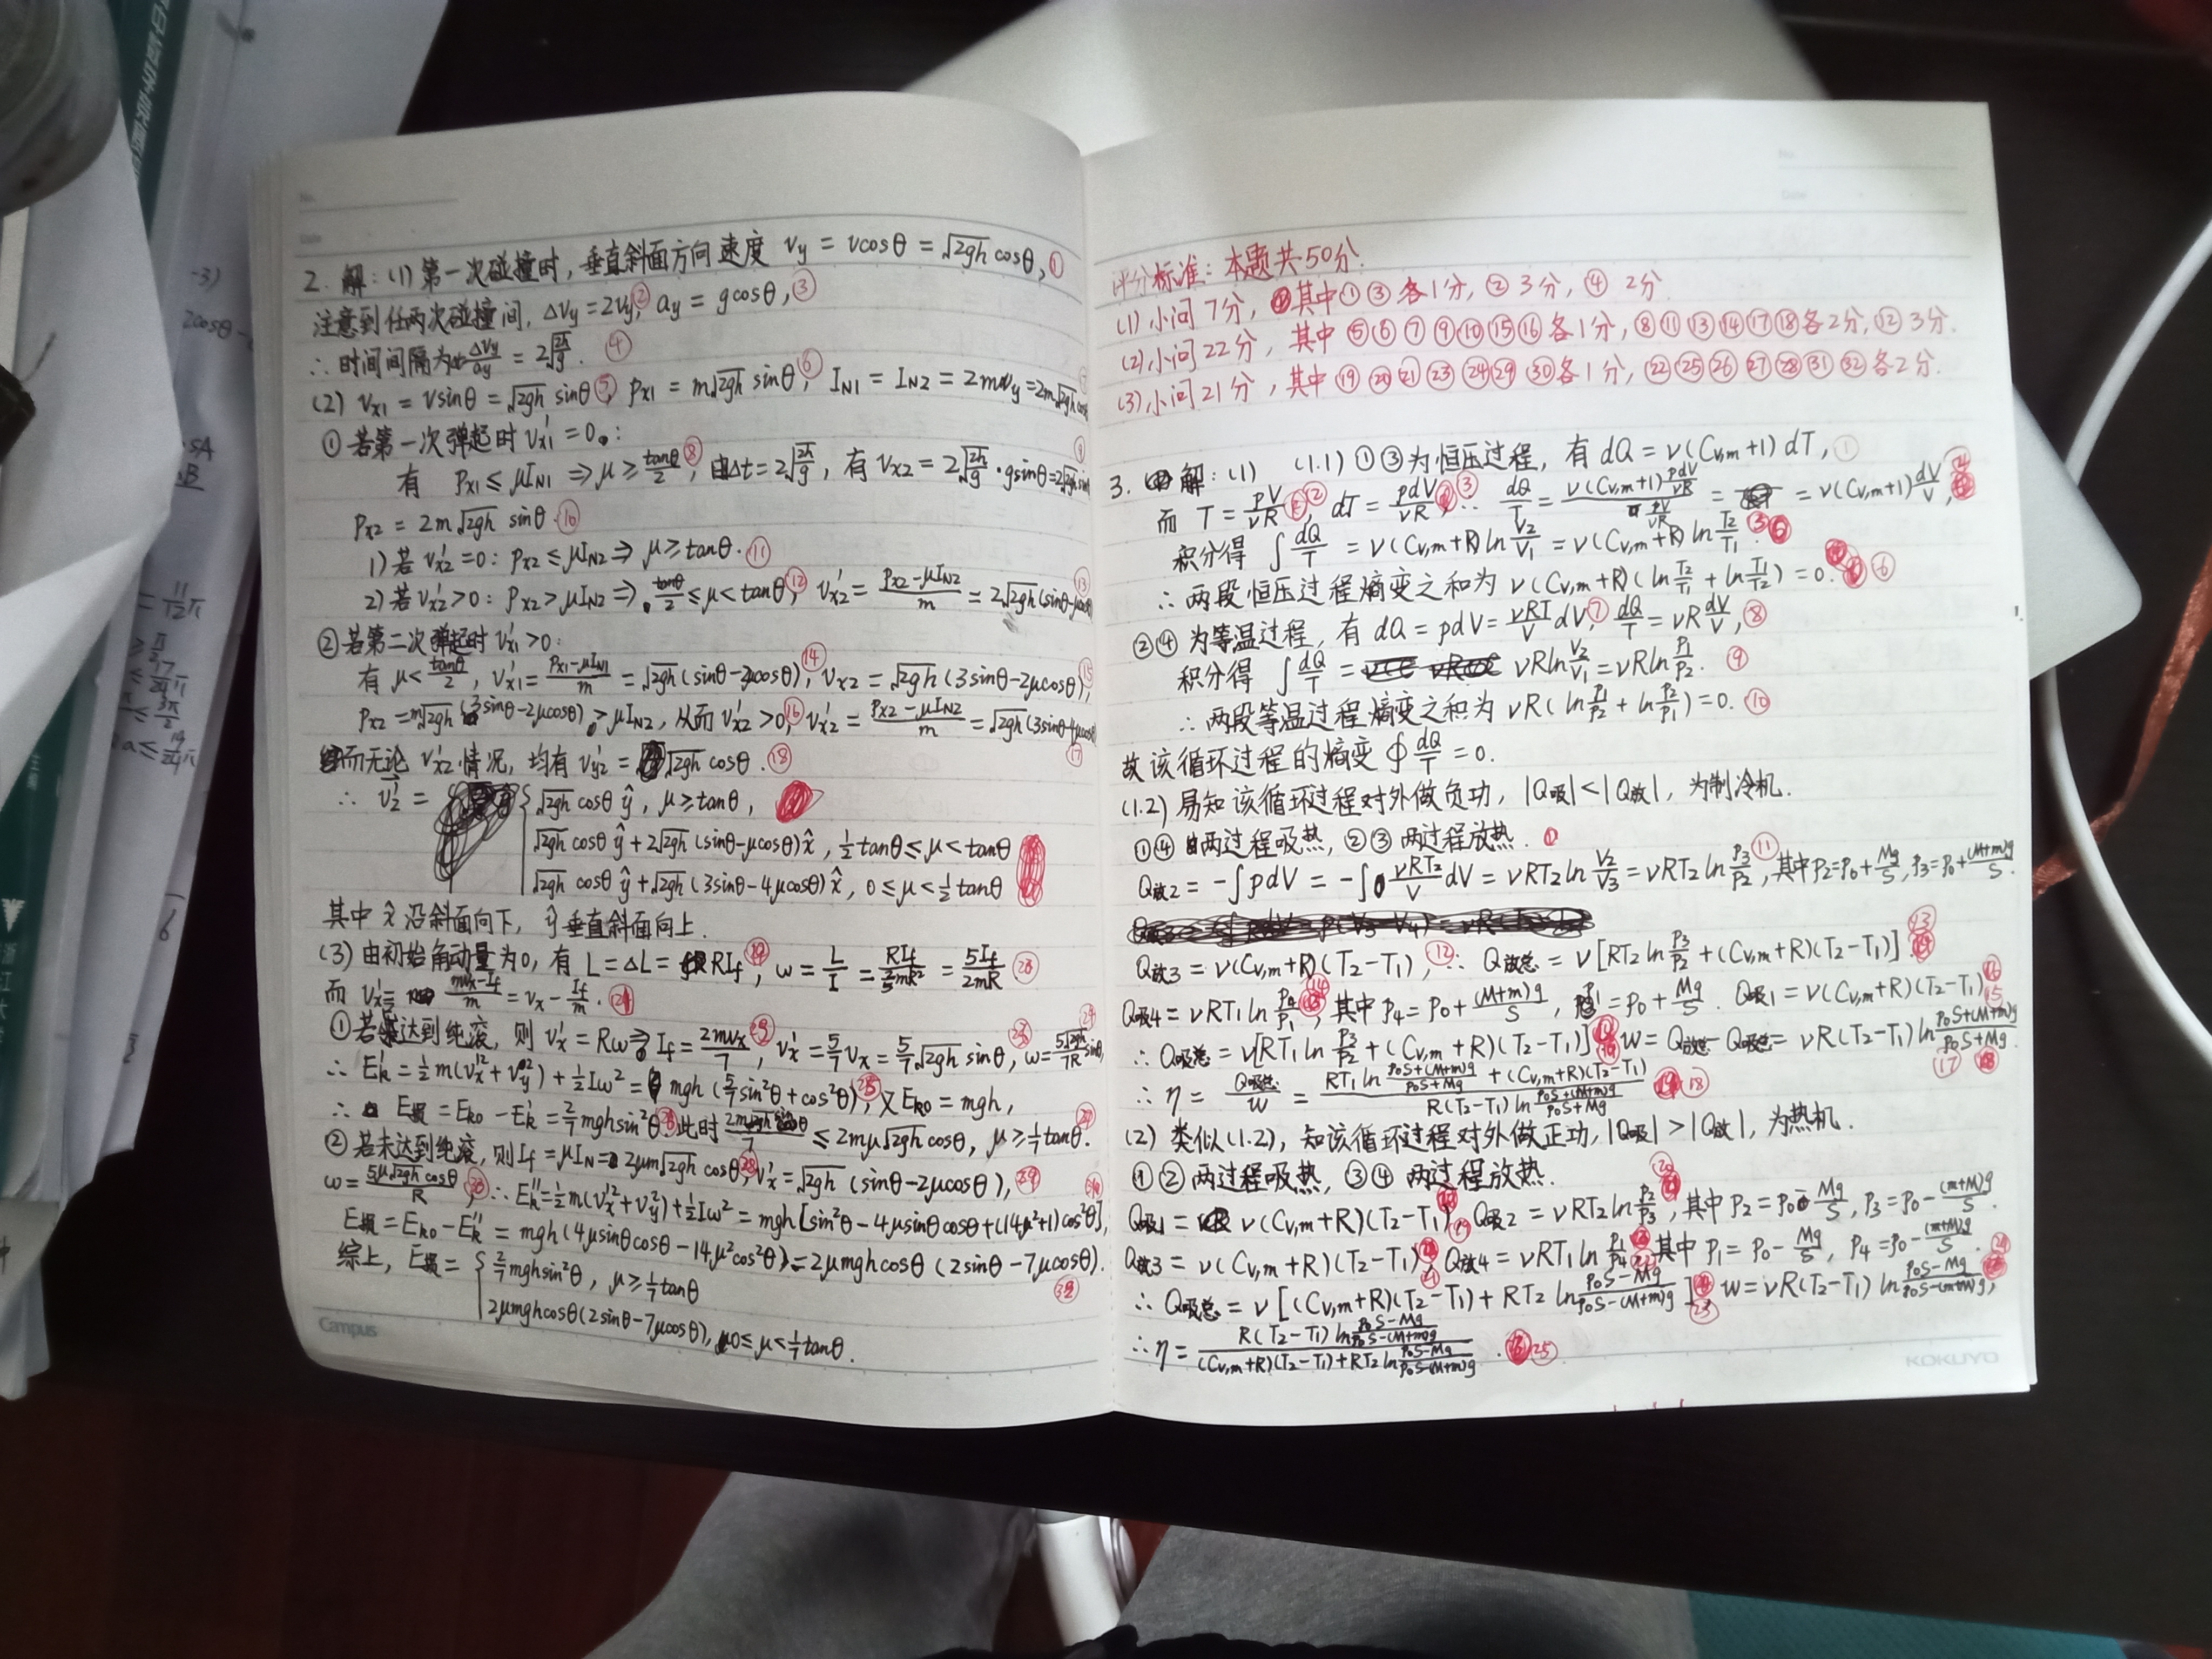 2. 解: (1) 第一次碰撞时, 垂直斜面方向速度 vy = vcosθ = √2gh cosθ, ①
注意到任两次碰撞间, Δvy = 2vy, ② ay = gcosθ, ③
∴ 时间间隔为 Δvy/ay = 2√(2h/g). ④
(2) vx1 = vsinθ = √2gh sinθ, ⑤ px1 = m√2gh sinθ, ⑥ IN1 = IN2 = 2mvy = 2m√2gh cosθ
① 若第一次弹起时 v'x1 = 0:
有 px1 ≤ μIN1 ⇒ μ ≥ tanθ/2, ⑧ 由Δt = 2√(2h/g), 有 vx2 = 2√(2h/g)·gsinθ = 2√2gh sinθ
px2 = 2m√2gh sinθ. ⑩
1) 若 v'x2 = 0: px2 ≤ μIN2 ⇒ μ ≥ tanθ. ⑪
2) 若 v'x2 > 0: px2 > μIN2 ⇒ tanθ/2 ≤ μ < tanθ, ⑫ v'x2 = (px2 − μIN2)/m = 2√2gh (sinθ−μcosθ) ⑬
② 若第二次弹起时 v'x1 > 0:
有 μ < tanθ/2, v'x1 = (px1 − μIN1)/m = √2gh (sinθ−2μcosθ), ⑭ vx2 = √2gh (3sinθ−2μcosθ), ⑮
px2 = m√2gh (3sinθ−2μcosθ) > μIN2, 从而 v'x2 > 0, ⑯ v'x2 = (px2 − μIN2)/m = √2gh (3sinθ−4μcosθ) ⑰
而无论 v'x2 情况, 均有 v'y2 = √2gh cosθ. ⑱
∴ v'2 = { √2gh cosθ ŷ, μ ≥ tanθ,
√2gh cosθ ŷ + 2√2gh (sinθ−μcosθ) x̂, ½tanθ ≤ μ < tanθ
√2gh cosθ ŷ + √2gh (3sinθ−4μcosθ) x̂, 0 ≤ μ < ½tanθ
其中 x̂ 沿斜面向下, ŷ 垂直斜面向上.
(3) 由初始角动量为0, 有 L = ΔL = RIf, ⑲ ω = L/I = RIf/(⅖mR²) = 5If/2mR ⑳
而 v'x = (mvx−If)/m = vx − If/m. ㉑
① 若达到纯滚, 则 v'x = Rω ⇒ If = 2mvx/7, v'x = 5/7 vx = 5/7 √2gh sinθ, ω = 5√2gh/7R sinθ,
∴ E'k = ½m(v'x²+v'y²) + ½Iω² = mgh (5/7 sin²θ + cos²θ), ㉕ 又Ek0 = mgh,
∴ E损 = Ek0 − E'k = 2/7 mgh sin²θ. 此时 2m√2gh sinθ/7 ≤ 2mμ√2gh cosθ, μ ≥ 1/7 tanθ.
② 若未达到纯滚, 则If = μIN = 2μm√2gh cosθ, ㉘ v'x = √2gh (sinθ−2μcosθ), ㉙
ω = 5μ√2gh cosθ/R, ㉚ ∴ E''k = ½m(v'x²+v'y²) + ½Iω² = mgh [sin²θ − 4μsinθcosθ + (14μ²+1)cos²θ],
E损 = Ek0 − E''k = mgh (4μsinθcosθ − 14μ²cos²θ) = 2μmghcosθ (2sinθ − 7μcosθ).
综上, E损 = { 2/7 mghsin²θ, μ ≥ 1/7 tanθ ㉜
2μmghcosθ(2sinθ−7μcosθ), 0 ≤ μ < 1/7 tanθ.
Campus
评分标准: 本题共50分.
(1) 小问 7分, 其中①③各1分, ② 3分, ④ 2分.
(2) 小问 22分, 其中 ⑤⑥⑦⑨⑩⑮⑯各1分, ⑧⑪⑬⑭⑰⑱各2分, ⑫ 3分.
(3) 小问 21分, 其中 ⑲⑳㉑㉓㉔㉙㉚各1分, ㉒㉕㉖㉗㉘㉛㉜各2分.
3. 解: (1) (1.1) ①③为恒压过程, 有 dQ = ν(Cv,m+1) dT, ①
而 T = pV/νR, ② dT = pdV/νR, ③ ∴ dQ/T = ν(Cv,m+1)(pdV/νR)/(pV/νR) = = ν(Cv,m+1) dV/V, ④
积分得 ∫dQ/T = ν(Cv,m+R) ln V2/V1 = ν(Cv,m+R) ln T2/T1.
∴ 两段恒压过程熵变之和为 ν(Cv,m+R)(ln T2/T1 + ln T1/T2) = 0. ⑥
②④ 为等温过程, 有 dQ = pdV = νRT/V dV, ⑦ dQ/T = νR dV/V, ⑧
积分得 ∫dQ/T = νRln V2/V1 = νRln P1/P2. ⑨
∴ 两段等温过程熵变之和为 νR( ln P1/P2 + ln P2/P1 ) = 0. ⑩
故该循环过程的熵变 ∮dQ/T = 0.
(1.2) 易知该循环过程对外做负功, |Q吸| < |Q放|, 为制冷机.
①④ 两过程吸热, ②③ 两过程放热.
Q放2 = −∫pdV = −∫νRT2/V dV = νRT2 ln V2/V3 = νRT2 ln P3/P2, ⑪ 其中 P2=P0+Mg/S, P3=P0+(M+m)g/S.
Q放3 = ν(Cv,m+R)(T2−T1), ⑫ ∴ Q放总 = ν[RT2 ln P3/P2 + (Cv,m+R)(T2−T1)]. ⑬
Q吸4 = νRT1 ln P4/P1, ⑭ 其中 P4 = P0 + (M+m)g/S, P1 = P0 + Mg/S. Q吸1 = ν(Cv,m+R)(T2−T1) ⑮
∴ Q吸总 = ν[RT1 ln P3/P2 + (Cv,m+R)(T2−T1)] W = Q放总 − Q吸总 = νR(T2−T1) ln (P0S+(M+m)g)/(P0S+Mg). ⑰
∴ η = Q吸总/W = (RT1 ln (P0S+(M+m)g)/(P0S+Mg) + (Cv,m+R)(T2−T1))/(R(T2−T1) ln (P0S+(M+m)g)/(P0S+Mg)) ⑱
(2) 类似(1.2), 知该循环过程对外做正功, |Q吸| > |Q放|, 为热机.
①② 两过程吸热, ③④ 两过程放热.
Q吸1 = ν(Cv,m+R)(T2−T1), Q吸2 = νRT2 ln P2/P3, 其中 P2 = P0 − Mg/S, P3 = P0 − (m+M)g/S.
Q放3 = ν(Cv,m+R)(T2−T1), ㉑ Q放4 = νRT1 ln P1/P4, 其中 P1 = P0 − Mg/S, P4 = P0 − (m+M)g/S.
∴ Q吸总 = ν[(Cv,m+R)(T2−T1) + RT2 ln (P0S−Mg)/(P0S−(M+m)g)], ㉓ W = νR(T2−T1) ln (P0S−Mg)/(P0S−(m+M)g),
∴ η = (R(T2−T1) ln (P0S−Mg)/(P0S−(M+m)g))/((Cv,m+R)(T2−T1)+RT2 ln (P0S−Mg)/(P0S−(M+m)g)). ㉕
KOKUYO